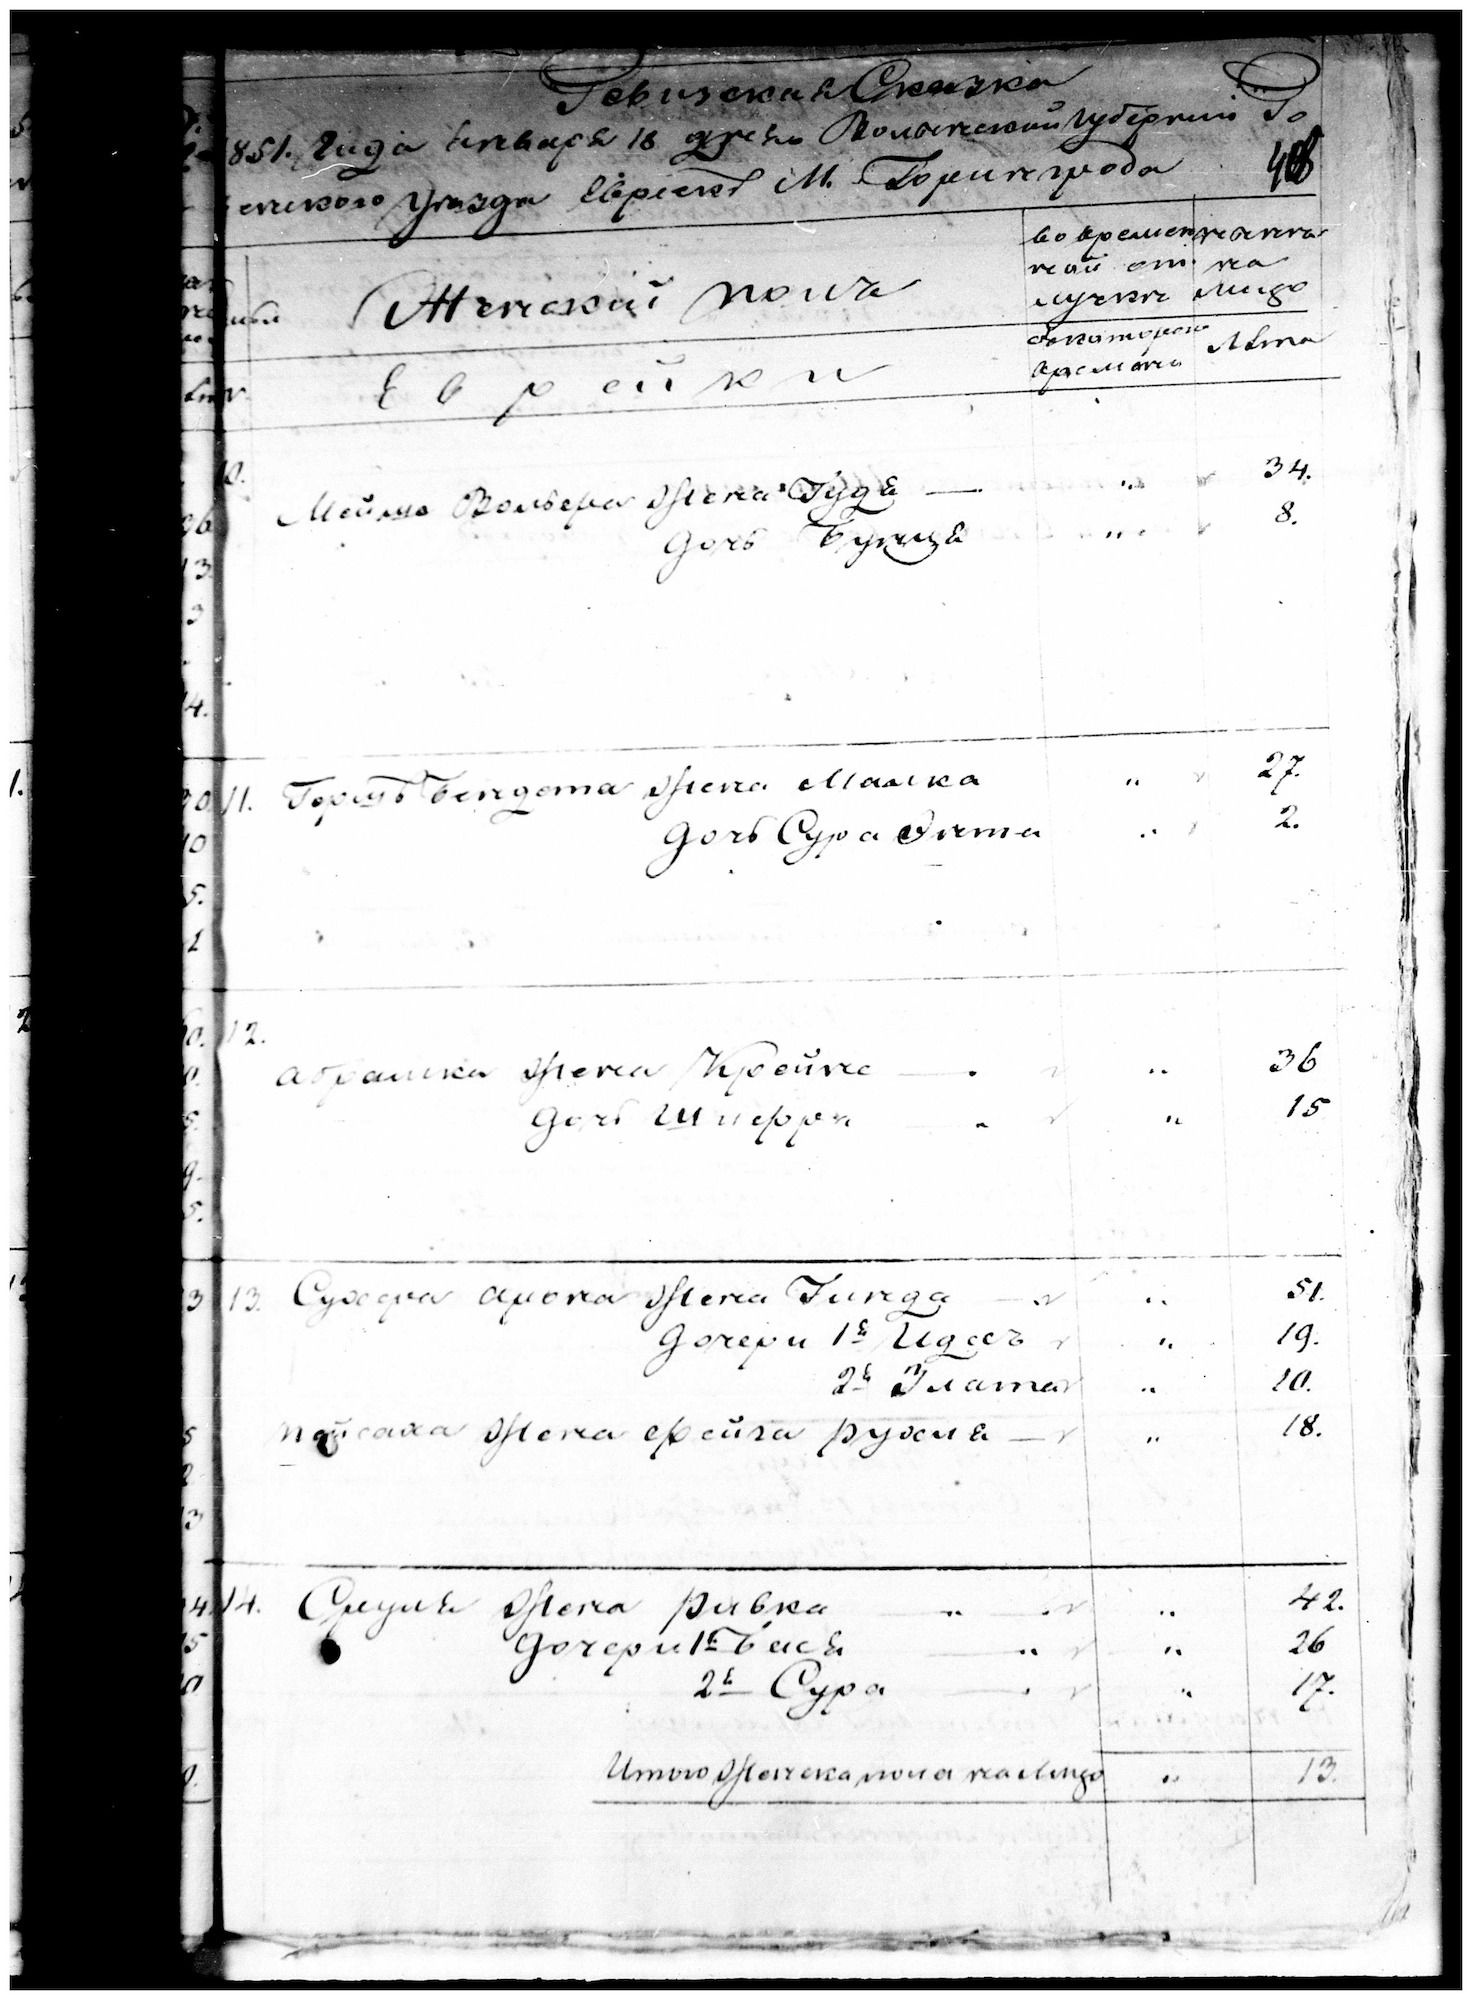 Ревизская Сказка
1851. Года Января 18 дня Волынской Губернии Ро
венского Уезда Евреевъ М. Горингрода
408
Женский полъ
во времен
ной от
лучке
налич
на
лицо
Еврейки
съ котораго
времени
Лета
10.
Мейше Вольфа жена Гудя — " 34.
дочь Бунця " 8.
11. Гершъ Бендета жена Малка " 27.
дочь Сура Энта " 2.
12.
Абрамка жена Крейна — " 36
дочь Шпефра — " 15
13. Сухера Арона жена Гинда — " 51.
дочери 1я Идесъ " 19.
2я Злата " 10.
Пейсаха жена Фейга Рухля — " 18.
14. Сруля жена Ривка — " 42.
дочери 1я Бася — " 26
2я Сура — " 17.
Итого женска пола на лицо " 13.